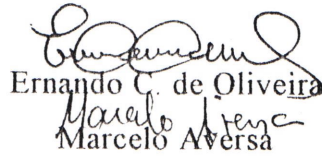 Ernando C. de Oliveira
Marcelo Aversa
Marcelo Aversa